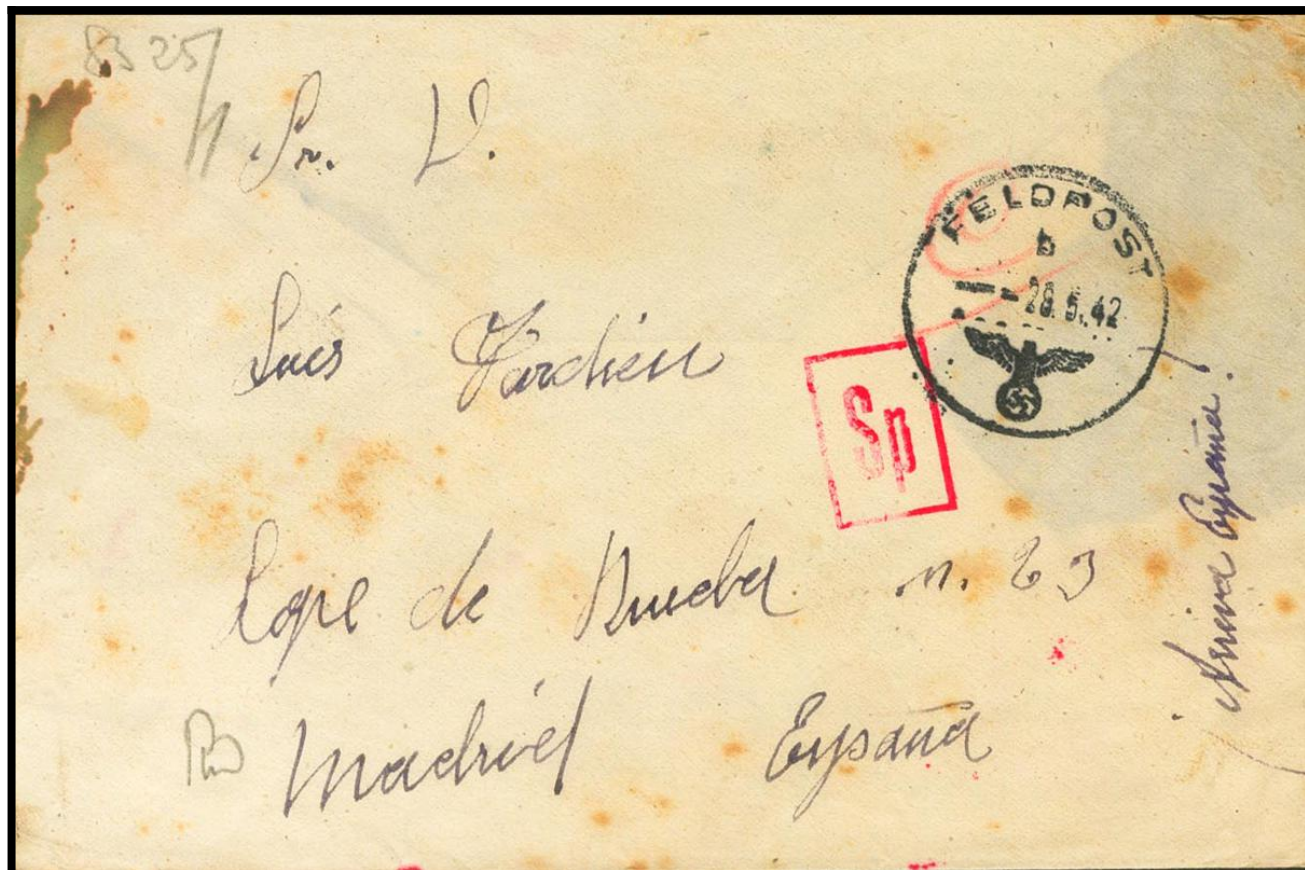 8325/
Sr. D.
Luis
FELDPOST
b
28.5.42
Sp
Lope de Rueda n. 23
Madrid España
¡Arriva España!